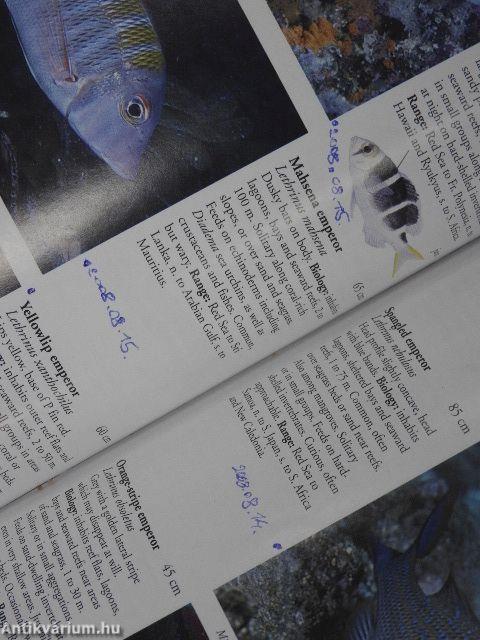 seaward reefs,
in small groups along
at night on hard-shelled
Range: Red Sea to Fr. Polynesia, n.
Hawaii and Ryukyus, s. to S. Africa
2008.08.15.
Mahsena emperor
65 cm
Lethrinus mahsena
Dusky bars on body. Biology: inhabits
lagoons, bays and seaward reefs, 2 to
100 m. Solitary along coral-rich
slopes, or over sand and seagrass.
Feeds on echinoderms including
Diadema sea urchins, as well as
crustaceans and fishes. Common
but wary. Range: Red Sea to Sri
Lanka, n. to Arabian Gulf, s. to
Mauritius.
2008.08.15.
Yellowlip emperor
60 cm
Lethrinus xanthochilus
Lips yellow, base of P fin red.
inhabits outer reef flats and
seaward reefs, 2 to 50 m.
groups in areas
coral or
Spangled emperor
85 cm
Lethrinus nebulosus
Head profile slightly concave, head
with blue bands. Biology: inhabits
lagoons, sheltered bays and seaward
reefs, 1 to 75 m. Common, often
over seagrass beds or sand near reefs.
Also among mangroves. Solitary
or in small groups. Feeds on hard-
shelled invertebrates. Curious, often
approachable. Range: Red Sea to
Samoa, n. to S. Japan, s. to S. Africa
and New Caledonia.
2008.08.14.
Orange-stripe emperor
45 cm
Lethrinus obsoletus
Grey with a golden lateral stripe
which may disappear at will.
Biology: inhabits reef flats, lagoons,
bays and seaward reefs near areas
of sand and seagrass, 1 to 30 m.
Solitary or in small aggregations.
Feeds on sand-dwelling invertebrates
in very shallow areas.
Occasionally
Range:
Antikvárium.hu